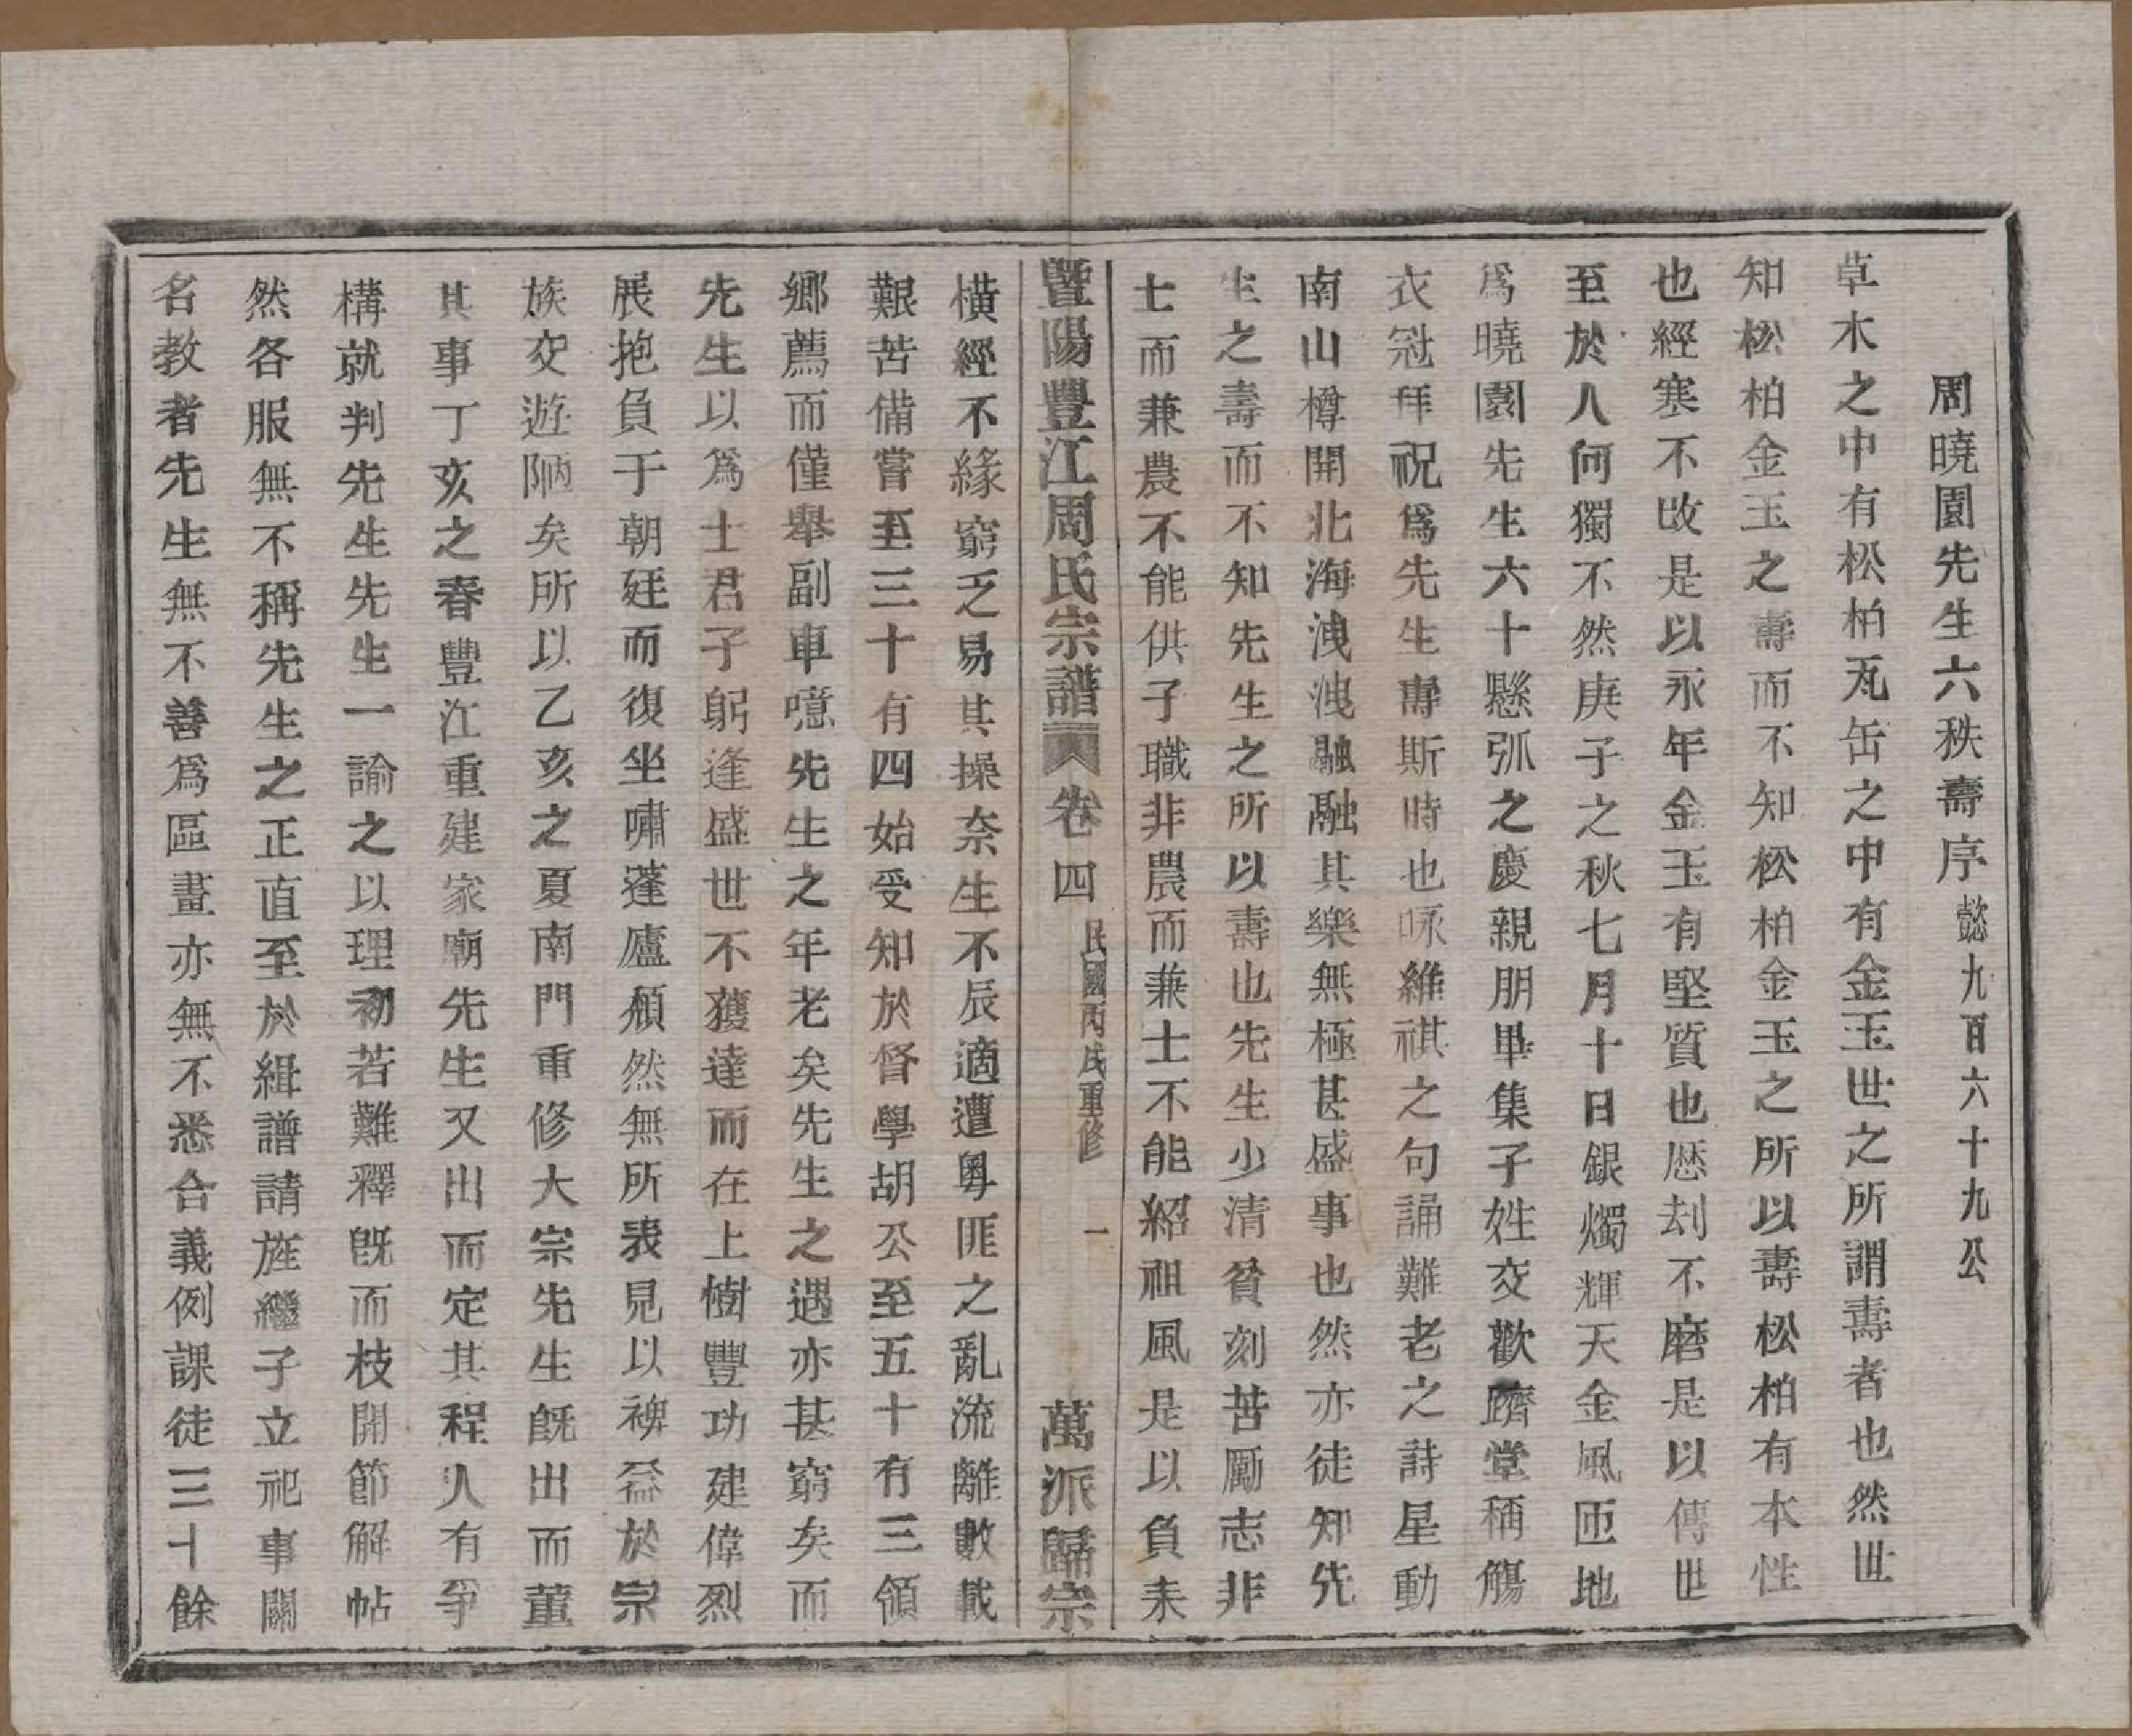 周曉園先生六秩壽序懿九百六十九公
草木之中有松柏瓦缶之中有金玉世之所謂壽者也然世
知松柏金玉之壽而不知松柏金玉之所以壽松柏有本性
也經寒不改是以永年金玉有堅質也歷刦不磨是以傳世
至於人何獨不然庚子之秋七月十日銀燭輝天金風匝地
爲曉園先生六十懸弧之慶親朋畢集子姓交歡躋堂稱觴
衣冠拜祝爲先生壽斯時也咏維祺之句誦難老之詩星動
南山樽開北海洩洩融融其樂無極甚盛事也然亦徒知先
生之壽而不知先生之所以壽也先生少清貧刻苦勵志非
士而兼農不能供子職非農而兼士不能紹祖風是以負耒
暨陽豐江周氏宗譜 卷四 民國丙戌重修 一 萬派歸宗
橫經不緣窮乏易其操奈生不辰適遭粤匪之亂流離數載
艱苦備嘗至三十有四始受知於督學胡公至五十有三領
鄉薦而僅舉副車噫先生之年老矣先生之遇亦甚窮矣而
先生以爲士君子躬逢盛世不獲達而在上樹豐功建偉烈
展抱負于朝廷而復坐嘯蓬廬頹然無所表見以裨益於宗
族交遊陋矣所以乙亥之夏南門重修大宗先生旣出而董
其事丁亥之春豐江重建家廟先生又出而定其程人有爭
構就判先生先生一諭之以理初若難釋旣而枝開節解帖
然各服無不稱先生之正直至於緝譜請旌繼子立祀事關
名教者先生無不善爲區畫亦無不悉合義例課徒三十餘